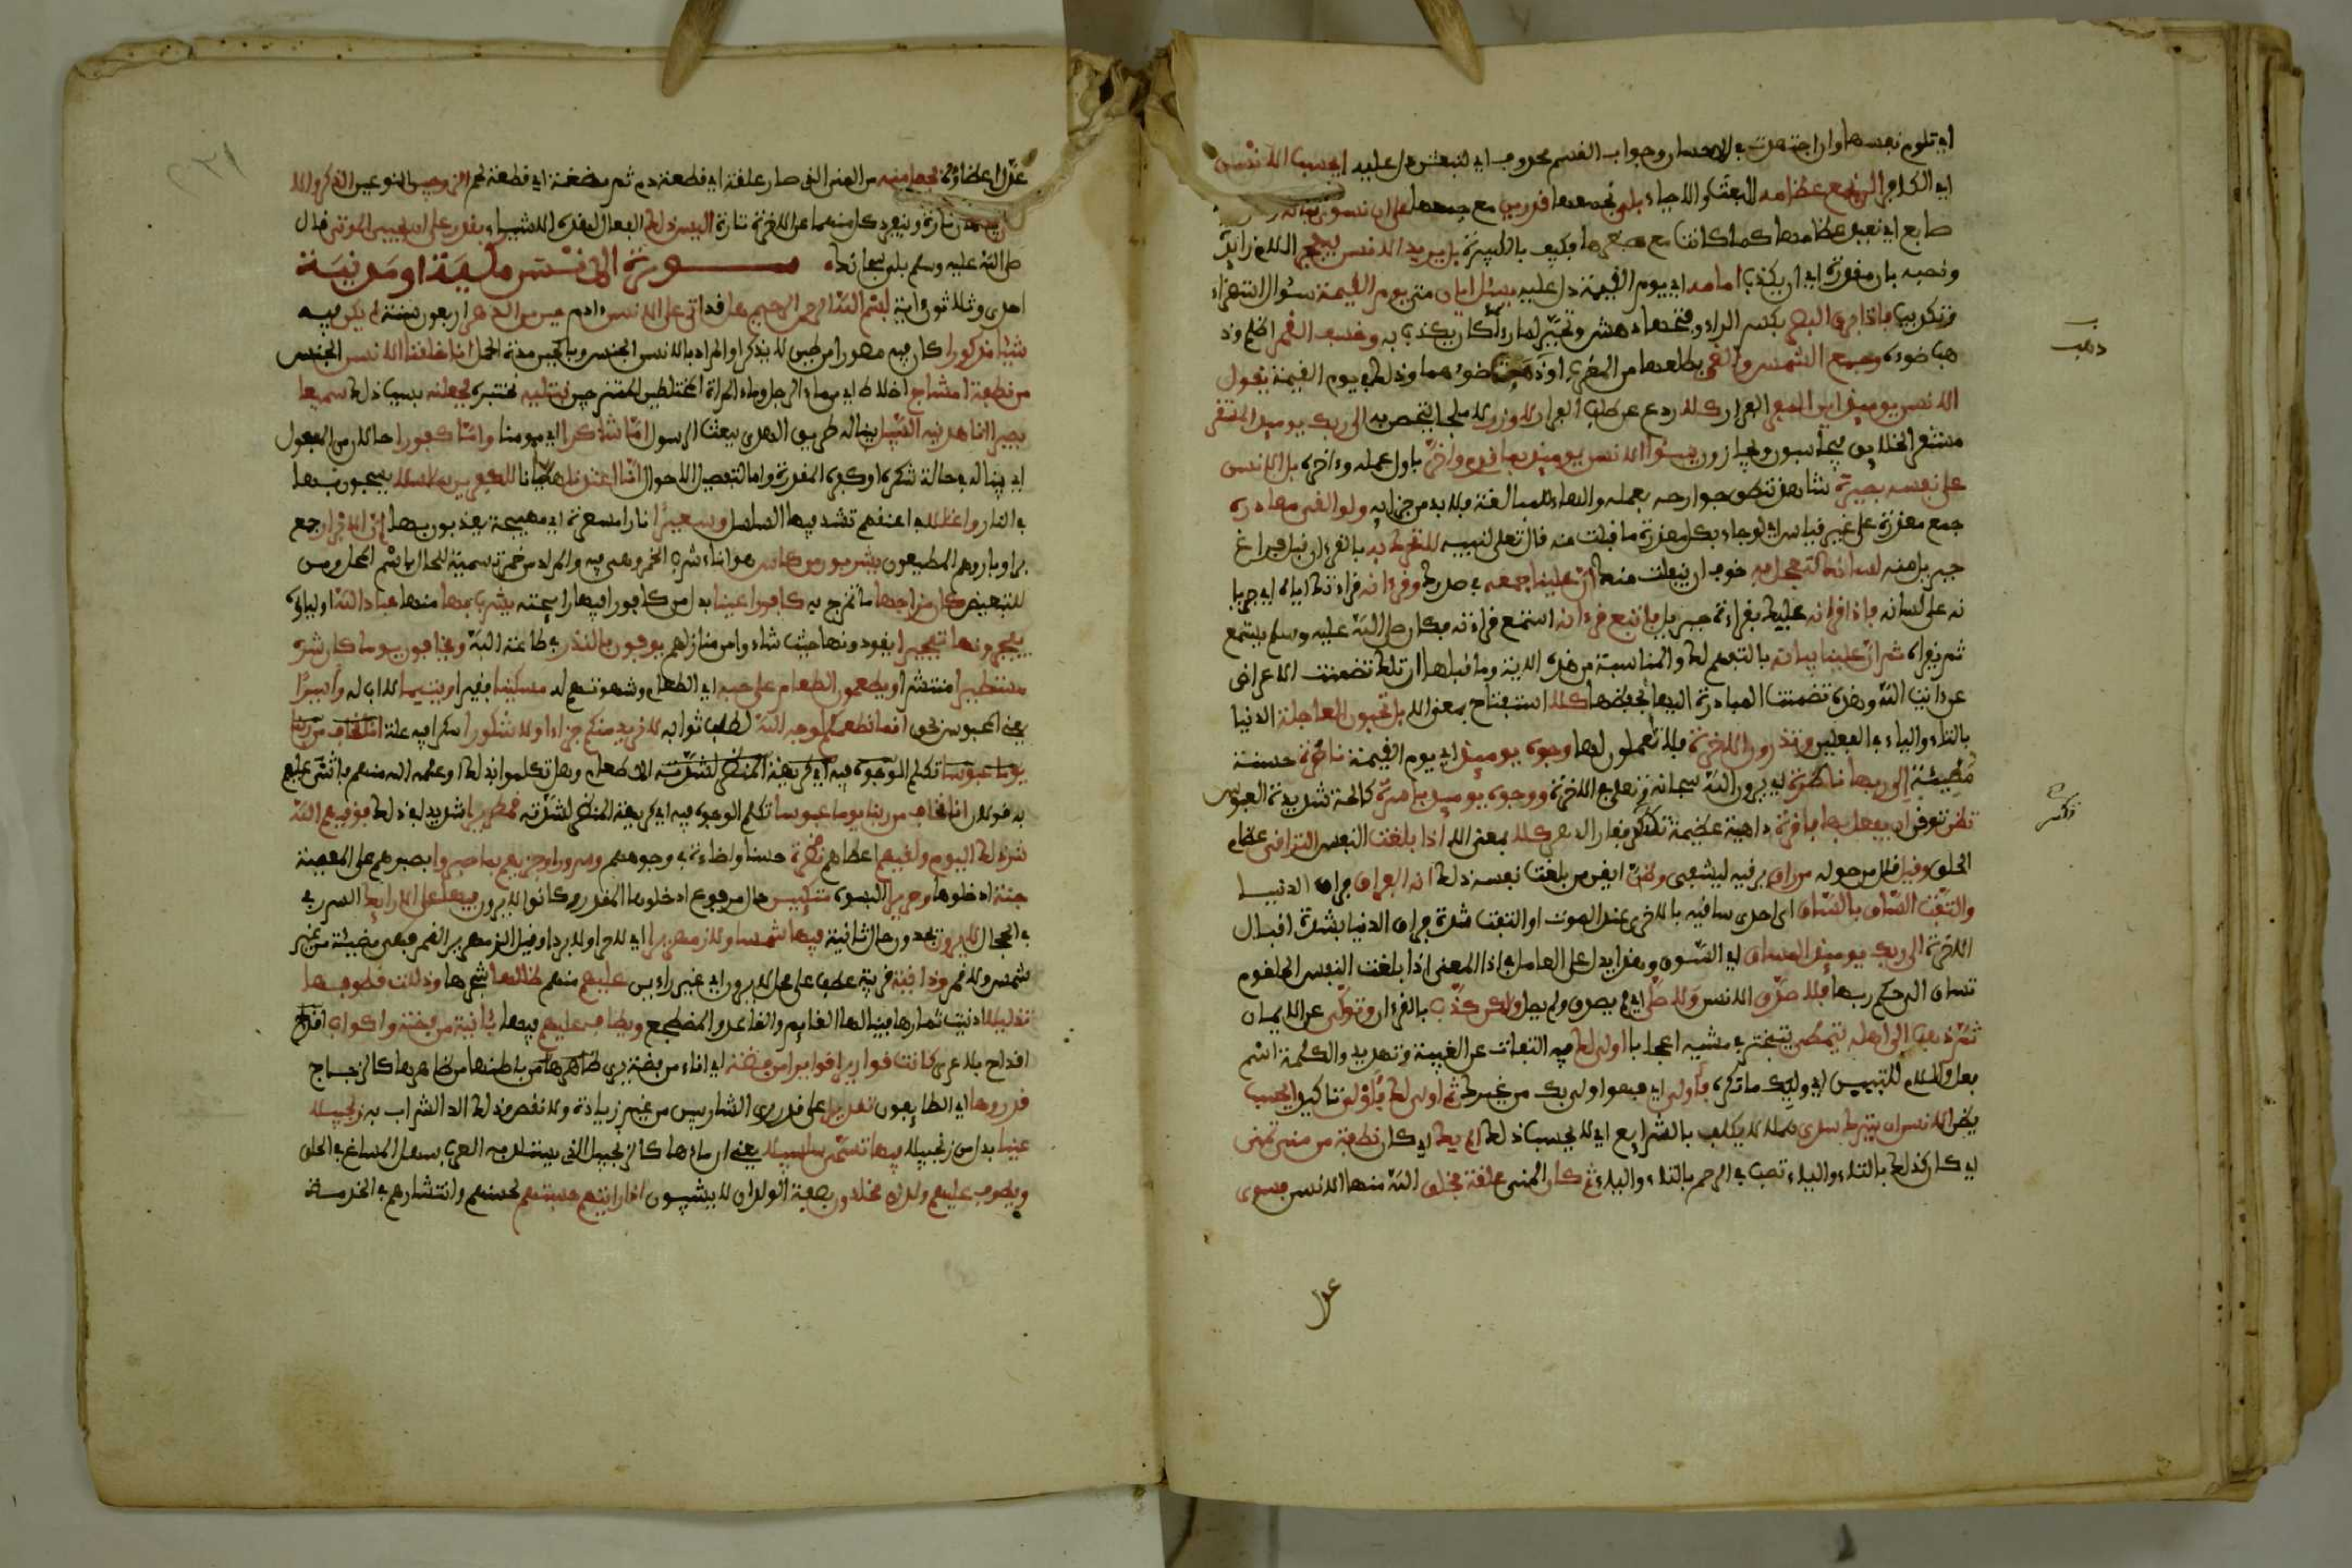 اي تلوم نفسها وان اجتهدت في الاحسان وجواب القسم محذوف اي لتبعثن دل عليه ايحسب الانسن
اي الكافر الن نجمع عظامه للبعث والاحياء بلى نجمعها قدرين مع جمعها على ان نسوي بنانه
صابع اي نعيد عظامها كما كانت مع صغرها فكيف بالكبيرة بل يريد الانسن ليفجر اللام زائدة
ونصبه بان مقدرة اي ان يكذب امامه اي يوم القيمة دل عليه يسئل ايان متى يوم القيمة سؤال استهزاء
وتكذيب فاذا برق البصر بكسر الراء وفتحها دهش وتحير لما رأى مما كان يكذب به وخسف القمر اظلم وذ
هب ضوءه وجمع الشمس والقمر فطلعا من المغرب او ذهب ضوءهما وذلك في يوم القيمة يقول
الانسن يومئذ اين المفر الفرار كلا ردع عن طلب الفرار لا وزر لا ملجأ يتحصن به الى ربك يومئذ المستقر
مستقر الخلايق فيحاسبون ويجازون ينبؤا الانسن يومئذ بما قدم واخر باول عمله وءاخره بل الانسن
على نفسه بصيرة شاهد تنطق جوارحه بعمله والهاء للمبالغة فلا بد من جزايه ولو القى معاذيره
جمع معذرة على غير قياس اي لو جاء بكل معذرة ما قبلت منه قال تعلى لنبيه لا تحرك به بالقرءان قبل فراغ
جبريل منه لسانك لتعجل به خوف ان ينفلت منك ان علينا جمعه في صدرك وقرءانه قراءتك اياه اي جريا
نه على لسانك فاذا قرأنه عليك بقراءة جبريل فاتبع قرءانه استمع قراءته فكان صلى الله عليه وسلم يستمع
ثم يقرأه ثم ان علينا بيانه بالتفهيم لك والمناسبة بين هذه الاية وما قبلها ان تلك تضمنت الاعراض
عن ءايت الله وهذه تضمنت المبادرة اليها بحفظها كلا استفتاح بمعنى الا بل تحبون العاجلة الدنيا
بالتاء والياء في الفعلين وتذرون الاخرة فلا تعملون لها وجوه يومئذ اي يوم القيمة ناضرة حسنة
مضيئة الى ربها ناظرة اي يرون الله سبحانه وتعلى في الاخرة ووجوه يومئذ باسرة كالحة شديدة العبوس
تظن توقن ان يفعل بها فاقرة داهية عظيمة تكسر فقار الظهر كلا بمعنى الا اذا بلغت النفس التراقي عظام
الحلق وقيل قال من حوله من راق يرقيه ليشفى وظن ايقن من بلغت نفسه ذلك انه الفراق فراق الدنيا
والتفت الساق بالساق اي احدى ساقيه بالاخرى عند الموت او التفت شدة فراق الدنيا بشدة اقبال
الاخرة الى ربك يومئذ المساق اي السوق وهذا يدل على العامل في اذا المعنى اذا بلغت النفس الحلقوم
تساق الى حكم ربها فلا صدق الانسن ولا صلى اي لم يصدق ولم يصل ولكن كذب بالقرءان وتولى عن الايمان
ثم ذهب الى اهله يتمطى يتبختر في مشيه اعجابا اولى لك فيه التفات عن الغيبة وتهديد والكلمة اسم
فعل واللام للتبيين اي وليك ما تكره فأولى اي فهو اولى بك من غيرك ثم اولى لك فأولى تاكيد ايحسب
يظن الانسن ان يترك سدى هملا لا يكلف بالشرايع اي لا يحسب ذلك الم يك اي كان نطفة من منى تمنى
اي كان كذلك بالتاء والياء تصب في الرحم بالتاء والياء ثم كان المني علقة فخلق الله منها الانسن فسوى
عدل
عدل اعضاءه فجعل منه من المني الذي صار علقة اي قطعة دم ثم مضغة اي قطعة لحم الزوجين النوعين الذكر والا
يجتمعان تارة وينفرد كل منهما عن الاخر تارة اليس ذلك الفعال لهذه الاشياء بقدر على ان يحيي الموتى قال
صلى الله عليه وسلم بلى سبحانك سورة الانسن مكية او مدنية
احدى وثلاثون ءاية بسم الله الرحمن الرحيم هل قد اتى على الانسن ءادم حين من الدهر اربعون سنة لم يكن فيه
شيئا مذكورا كان فيه مصورا من طين لا يذكر او المراد بالانسن الجنس وبالحين مدة الحمل انا خلقنا الانسن الجنس
من نطفة امشاج اخلاط اي من ماء الرجل وماء المراة المختلطين الممتزجين نبتليه نختبره فجعلنه بسبب ذلك سميعا
بصيرا انا هدينه السبيل بينا له طريق الهدى ببعث الرسول اما شاكرا اي مومنا واما كفورا حالان من المفعول
اي بينا له في حالة شكره او كفره المقدرة واما لتفصيل الاحوال انا اعتدنا هيأنا للكفرين سلاسلا يسحبون بها
في النار واغللا في اعنقهم تشد فيها السلاسل وسعيرا نارا مسعرة اي مهيجة يعذبون بها ان الابرار جمع
بر او بار وهم المطيعون يشربون من كاس هو اناء شرب الخمر وهي فيه والمراد من خمر تسمية للحال باسم المحل ومن
للتبعيض كان مزاجها ما تمزج به كافورا عينا بدل من كافورا فيها رايحته يشرب بها منها عباد الله اولياؤه
يفجرونها تفجيرا يقودونها حيث شاءوا من منازلهم يوفون بالنذر في طاعة الله ويخافون يوما كان شره
مستطيرا منتشرا ويطعمون الطعام على حبه اي الطعام وشهوتهم له مسكينا فقيرا ويتيما لا اب له واسيرا
يعني المحبوس بحق انما نطعمكم لوجه الله لطلب ثوابه لا نريد منكم جزاءا ولا شكورا شكرا فيه علة انا نخاف من ربنا
يوما عبوسا تكلح الوجوه فيه اي كريهة المنظر لشدته الاطعام وهل تكلموا بذلك او علمه الله منهم فاثنى عليهم
به قولان انا نخاف من ربنا يوما عبوسا تكلح الوجوه فيه اي كريهة المنظر لشدته قمطريرا شديدا في ذلك فوقيهم الله
شر ذلك اليوم ولقيهم اعطاهم نضرة حسنا واضاءة في وجوههم وسرورا وجزيهم بما صبروا بصبرهم على المعصية
جنة ادخلوها وحريرا البسوه متكئين حال من مرفوع ادخلوها المقدر وكانوا لا يرون فيها على الارايك السرر في
الحجال لا يرون يجدون حال ثانية فيها شمسا ولا زمهريرا اي لا حرا ولا بردا وقيل الزمهرير القمر فهي مضيئة من غير
شمس ولا قمر ودانية قريبة عطف على محل لا يرون اي غير راءين عليهم منهم ظللها شجرها وذللت قطوفها
تذليلا ادنيت ثمارها فينالها القايم والقاعد والمضطجع ويطاف عليهم فيها بءانية من فضة واكواب اقداح
اقداح بلا عرى كانت قواريرا قواريرا من فضة اي اناء من فضة يرى ظاهرها من باطنها من ظاهرها كالزجاج
قدروها اي الطايفون تقديرا على قدر ري الشاربين من غير زيادة ولا نقص وذلك الذ الشراب زنجبيلا
عينا بدل من زنجبيلا فيها تسمى سلسبيلا يعني ان ماءها كالزنجبيل الذي يستلذ به العرب سهل المساغ في الحلق
ويطوف عليهم ولدان مخلدون بصفة الولدان لا يشيبون اذا رايتهم حسبتهم لحسنهم وانتشارهم في الخدمة